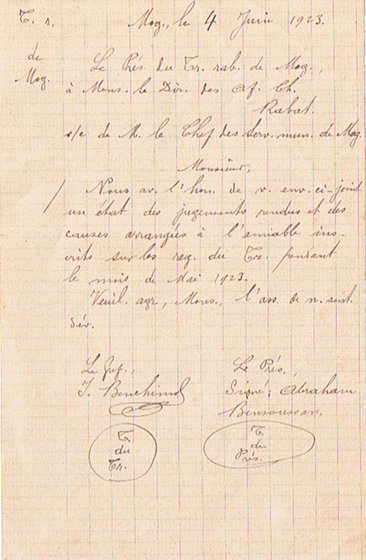 T. r. Mog., le 4 Juin 1923.
de
Mog.
Le Prés. du Tr. rab. de Mog.,
à Mons. le Dir. des Af. Ch.
Rabat.
s/c de M. le Chef des Serv. mun. de Mog.
Monsieur,
Nous av. l'hon. de v. env. ci-joint
un état des jugements rendus et des
causes arrangées à l'amiable ins-
crits sur les reg. du Tr. pendant
le mois de Mai 1923.
Veuil. agr., Mons., l'ass. de n. sent.
dév.
Le Gref., Le Prés.
J. Benchimol Signé: Abraham
Bensoussan.
T. T.
du du
Tr. Prés.